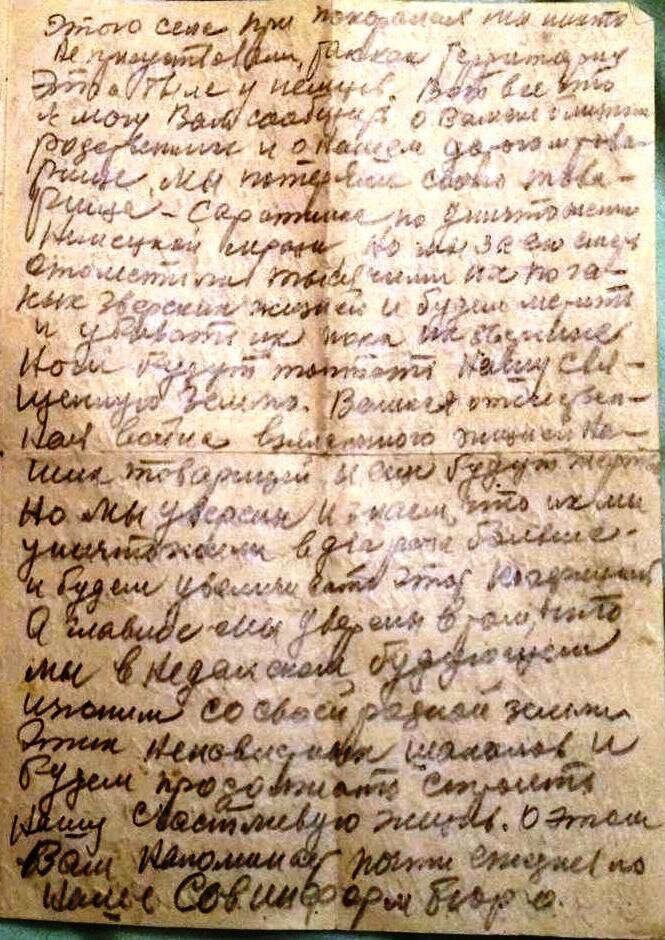 этого села при похоронах мы никто
не присутствовали, так как территория
эта была у немцев. Вот все что
я могу Вам сообщить о Вашем
родственнике и о нашем дорогом това-
рище, мы потеряли своего това-
рища - соратника по уничтожению
немецкой но мы за
отомстили тысячами их пога-
ных зверских жизней и будем мстить
и убивать их пока их
ноги будут топтать нашу свя-
щенную землю. Великая отечествен-
ная война взяла много жизней на-
ших товарищей, и еще будут жертвы
Но мы уверены и знаем, что их мы
уничтожили в два раза больше -
и будем увеличивать этот
А главное мы уверены в том, что
мы в недалеком будующем
изгоним со своей родной земли
этих ненавистных шакалов и
будем продолжать строить
нашу счастливую жизнь. О этом
Вам напоминает почти ежедневно
наше Совинформбюро.